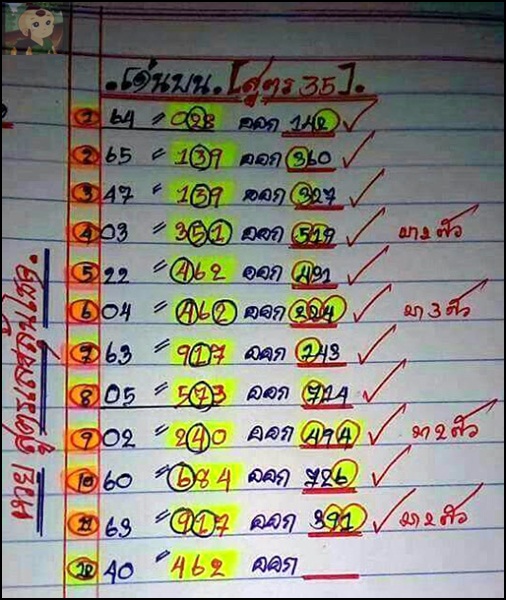 เด่นบน. [สูตร 35].
1 64 = 028 ออก 142
2 65 = 139 ออก 360
3 47 = 139 ออก 327
4 03 = 351 ออก 519 มา 2 ตัว
5 22 = 462 ออก 491
6 04 = 462 ออก 224 มา 3 ตัว
7 63 = 917 ออก 743
8 05 = 573 ออก 774
9 02 = 240 ออก 494 มา 2 ตัว
10 60 = 684 ออก 726
11 63 = 917 ออก 391 มา 2 ตัว
12 40 = 462 ออก
หวย สูตรเลข